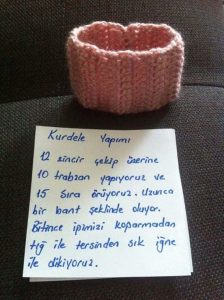 Kurdele Yapımı
12 zincir çekip üzerine
10 trabzan yapıyoruz ve
15 sıra örüyoruz. Uzunca
bir bant şeklinde oluyor.
Bitince ipimizi koparmadan
tığ ile tersinden sık iğne
ile dikiyoruz.